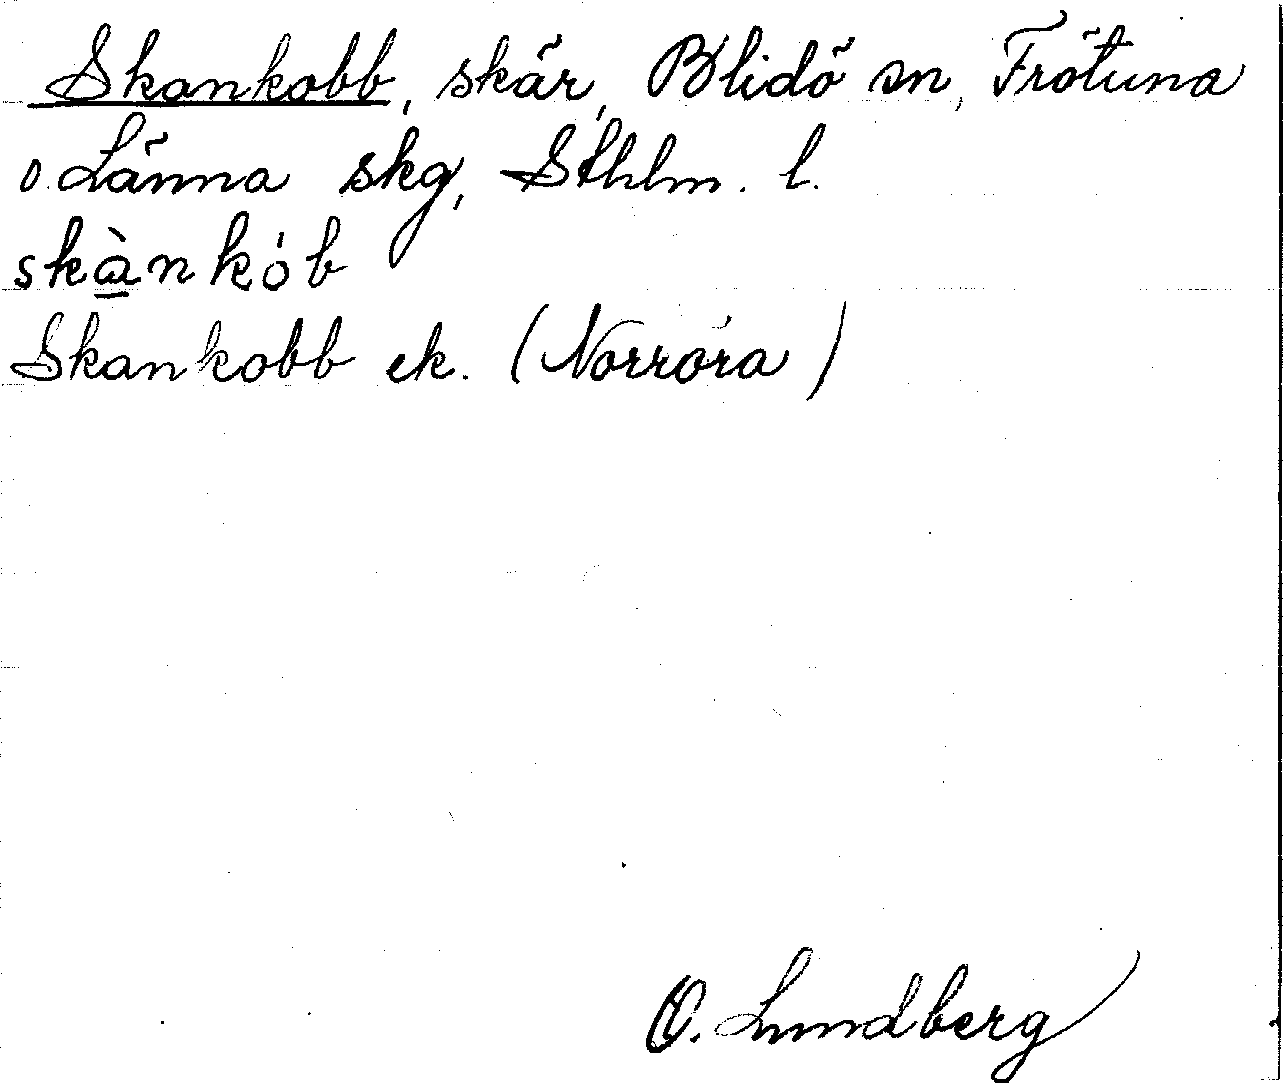 Skankobb, skär, Blidö sn, Frötuna
o. Länna skg, Sthlm. l.
skànkób
Skankobb ek. (Norröra)
O. Lundberg